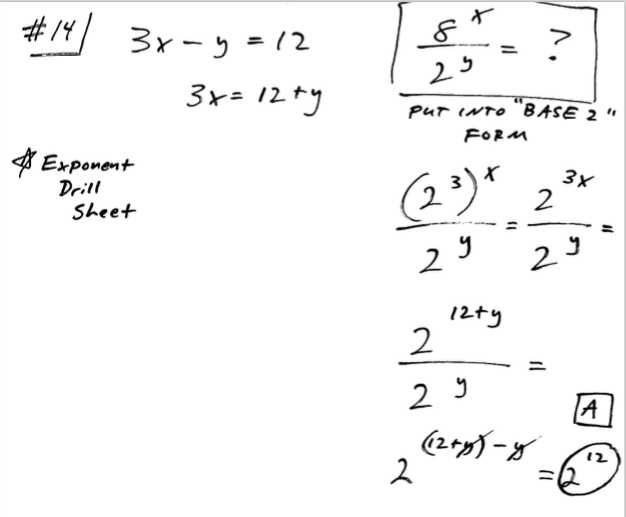 #14
3x - y = 12
3x = 12 + y
* Exponent
Drill
Sheet
8^x / 2^y = ?
PUT INTO "BASE 2"
FORM
(2^3)^x / 2^y = 2^(3x) / 2^y =
2^(12+y) / 2^y =
A
2^((12+y)-y) = 2^12